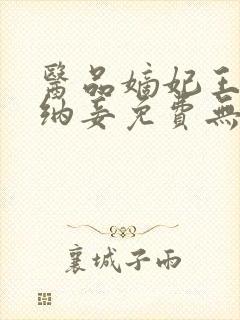 醫品嫡妃王
納妾免費無
襄城子雨